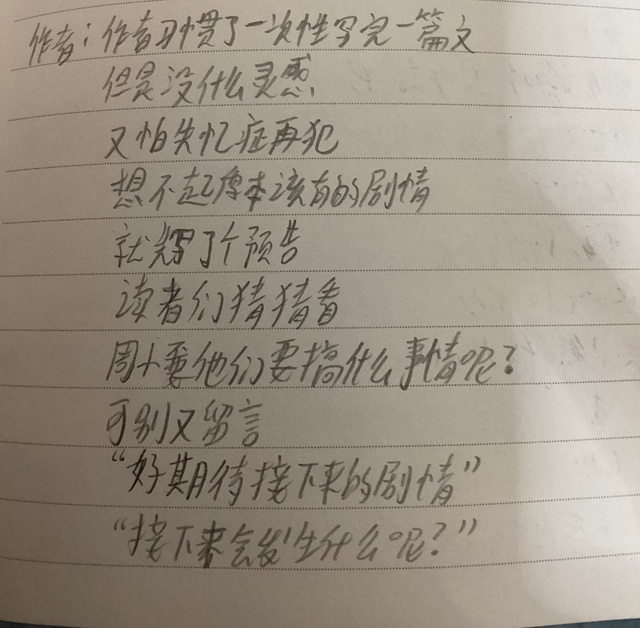 作者：作者习惯了一次性写完一篇文
但是没什么灵感
又怕失忆症再犯
想不起原本该有的剧情
就写了个预告
读者们猜猜看
周小要他们要搞什么事情呢？
可别又留言
“好期待接下来的剧情”
“接下来会发生什么呢？”